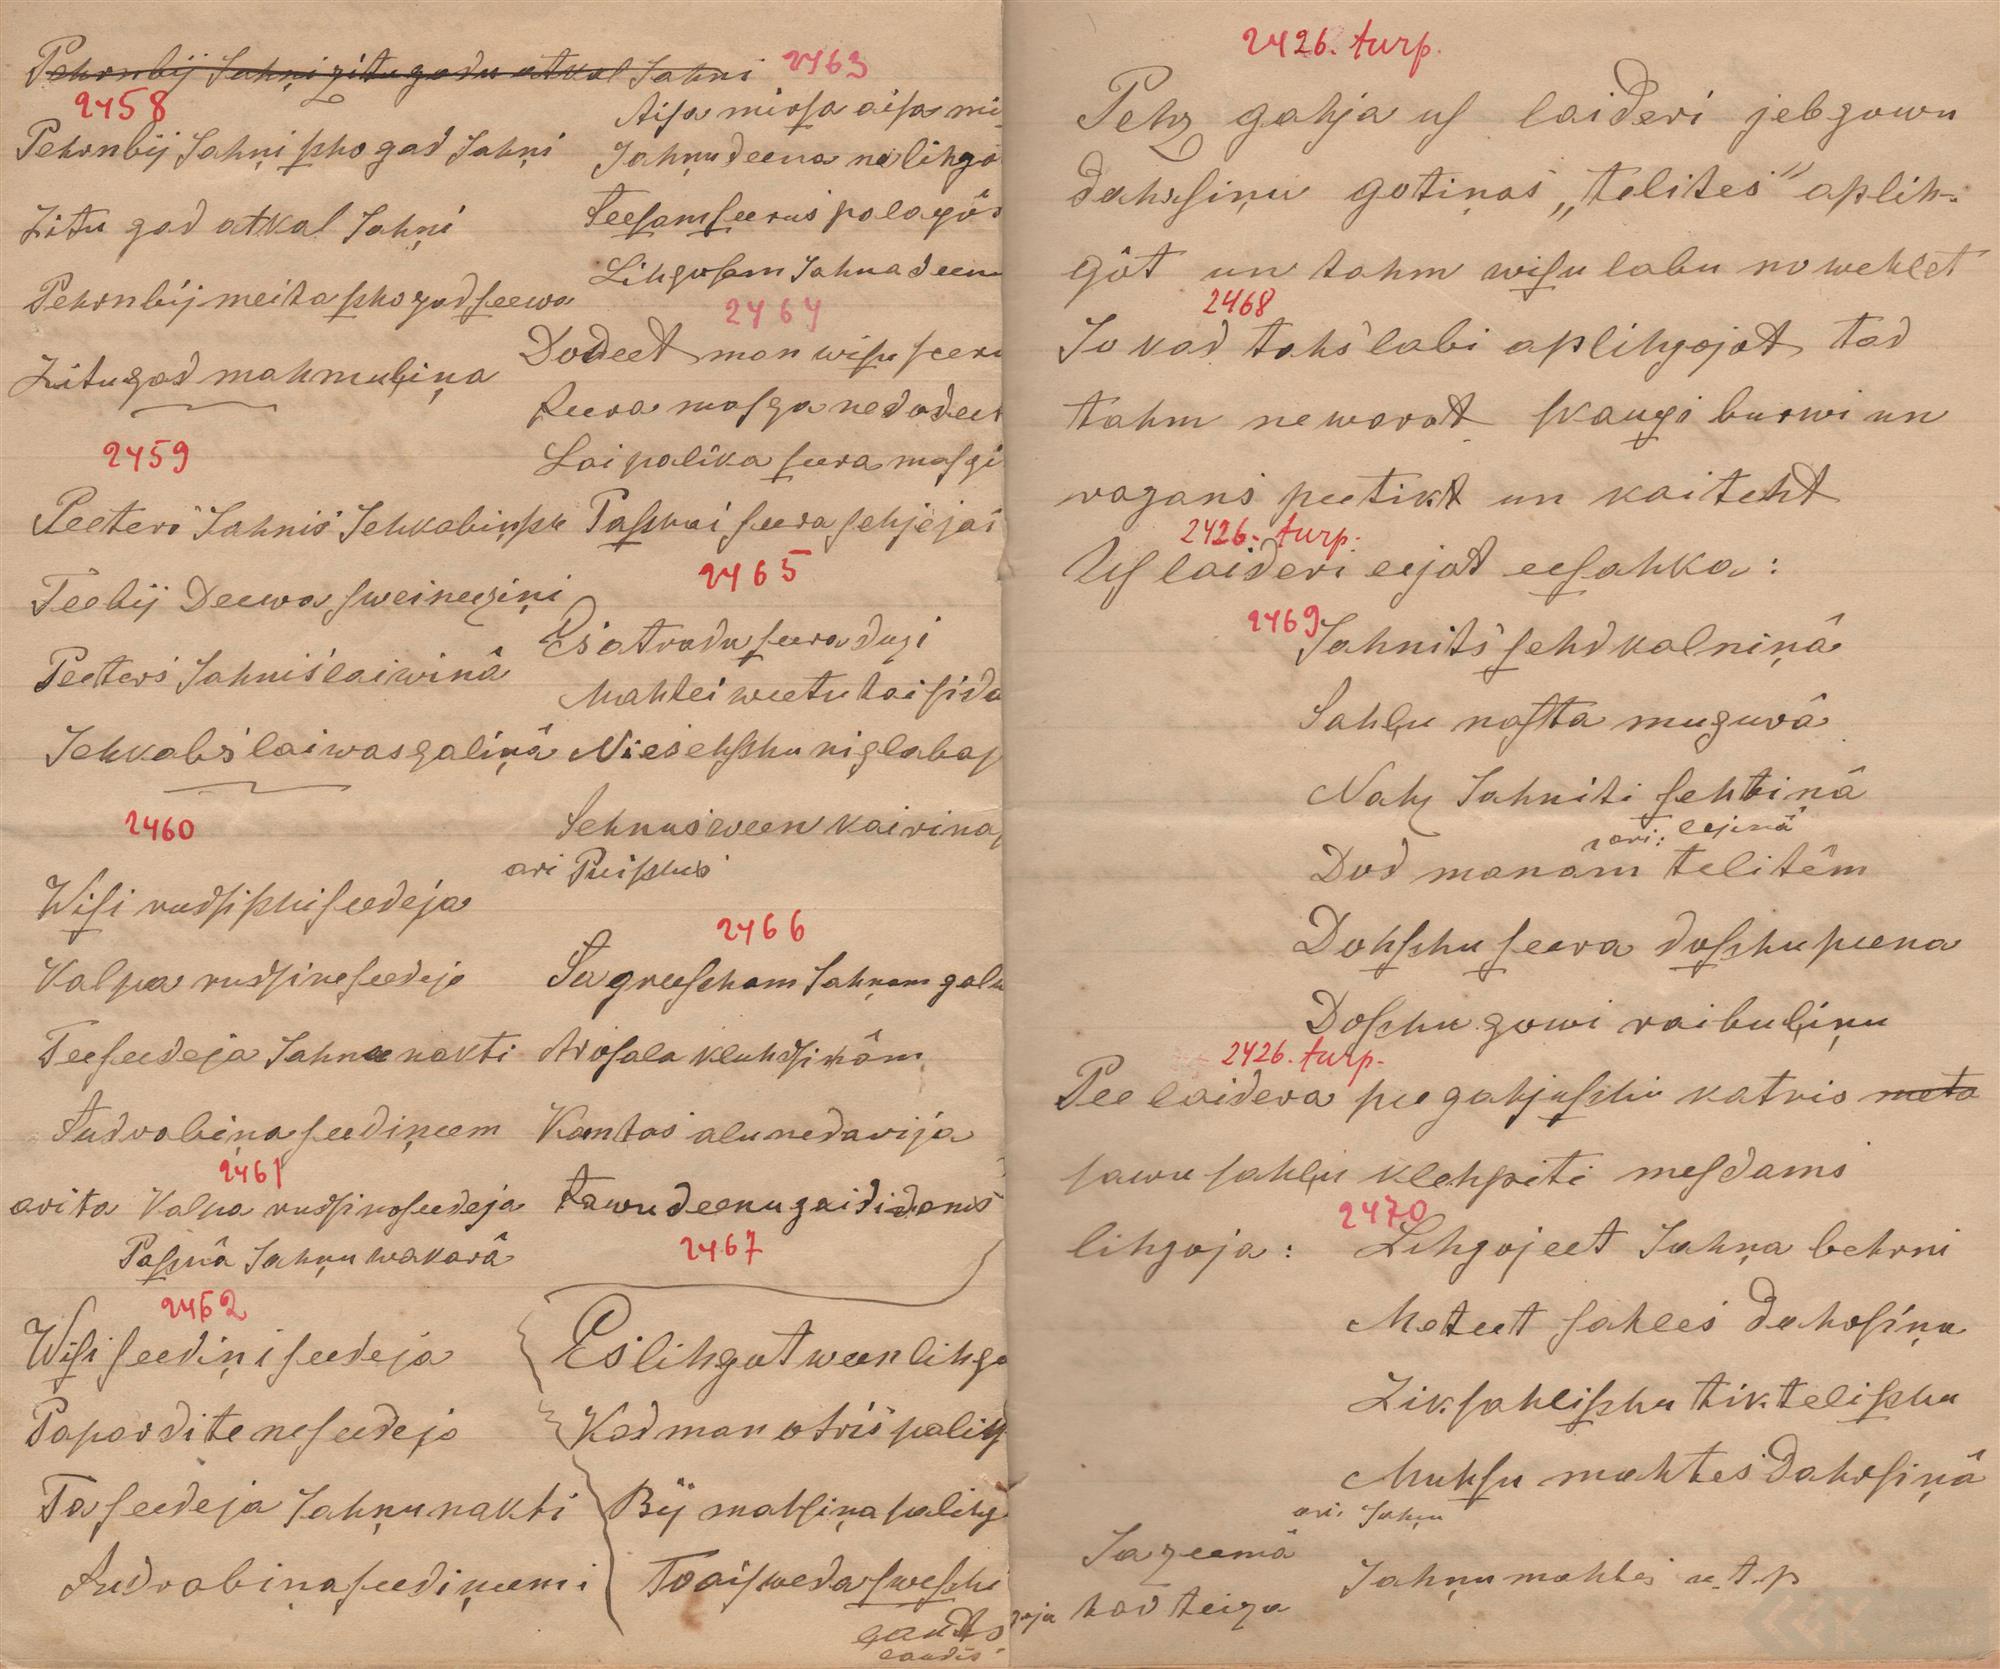 Pehrnbij Jahņi zitu gadu atkal Jahņi
2458
Pehrnbij Jahņi scho gad Jahņi
Zitu gad atkal Jahņi
Pehrnbij meita scho gad seewa
Zitu gad mahmuliņa
2459
Peeters Jahnis Jehkabinsch
Tee bij Deewa sweineeziņi
Peeters Jahnis laiwinâ
Jehkabs laiwas galiņâ
2460
Wisi rudsischi seedeja
Valpa rudsi neseedeja
Tee seedeja Jahnu nakti
Sudrabiņa seediņeem
2461
arita Valpa rudsi neseedeja
Paschâ Jahņu wakarâ
2462
Wisi seediņi seedeja
Papardite neseedeja
Ta seedeja Jahņu nakti
Sudrabiņa seediņeemi
2463
Aisa mirsa aisa mi-
Jahņu deena ne lihgo
Teesam seerus palagôs
Lihgosam Jahna deenu
2464
Dodeet man wisu seeru
Seera masga nedodeet
Lai palika seera masgi
Paschai seera sehjejai
2465
Es atradu seera dugi
Mahtei weetu tai sida
Nies ehschu ni glabaj
Sehnus ween kairinaj
ari Puischus
2466
Sagreescham Jahņam galw
Arosala kluhdsikâm
Kam tas alu nedarija
Sawu deenu gaididams
2467
Es lihgot ween lihgo
Kad man otris palihg
Bij mahsiņa palihg
To aisweda sweschi
gaudis
laudis
2426. turp.
Pehz gahja us laideri jeb gowu
dahrsiņu gotiņas „telites" aplih-
gôt un tahm wisu labu nowehlet
2468
Jo kad tahs labi aplihgojot tad
tahm newarot skaugi burwi un
ragans peetikt un kaiteht
2426. turp.
Us laideri eejot eesahka:
2469
Jahnits sehd kalniņâ
Sahlu nasta mugurâ
Nahz Jahniti sehtiņâ
ari: lejinâ
Dod manam telitêm
Dohschu seera doschu peena
Doschu gowi raibuliņu
2426. turp.
Pee laidera pee gahjuschi katris meta
sawu sahlu klehpiti mesdams
lihgoja:
2470
Lihgojeet Jahņa behrni
Meteet sahles dahrsiņa
Zik sahlischu tik telischu
Muhsu mahtes dahrsiņâ
ari Jahņu
Jazeemâ
Jahņu mahtes u.t.p
kad teiza